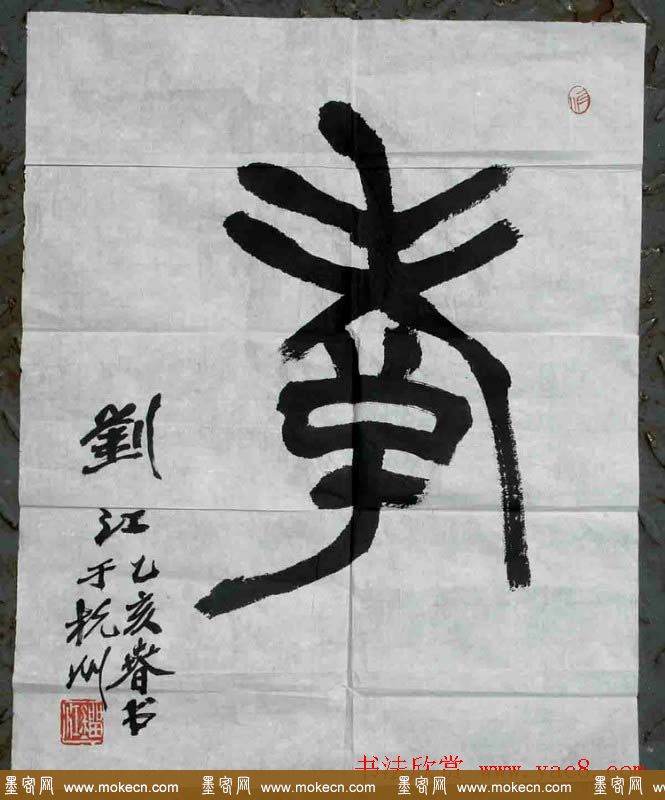 壽
劉江
乙亥春书
于杭州
书法欣赏 www.yac8.com
墨客网 www.mokecn.com 墨客网 www.mokecn.com 墨客网 www.mokecn.com 墨客网 www.mokecn.com